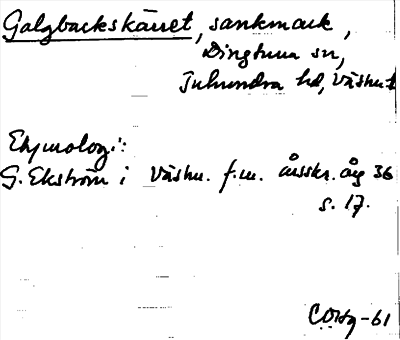 Galgbackskärret, sankmark,
Dingtuna sn,
Tuhundra hd, Västm.
Etymologi:
G. Ekström i Västm. f.m. årsskr. årg 36
s. 17.
-61